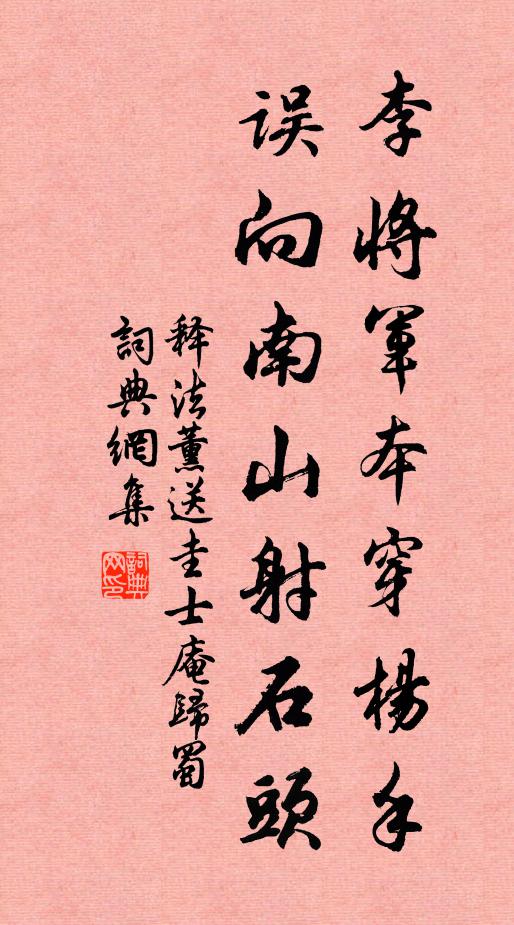 李將軍本穿楊手
误向南山射石頭
释法薰送圭士庵歸蜀
詞典網集
詞典網印